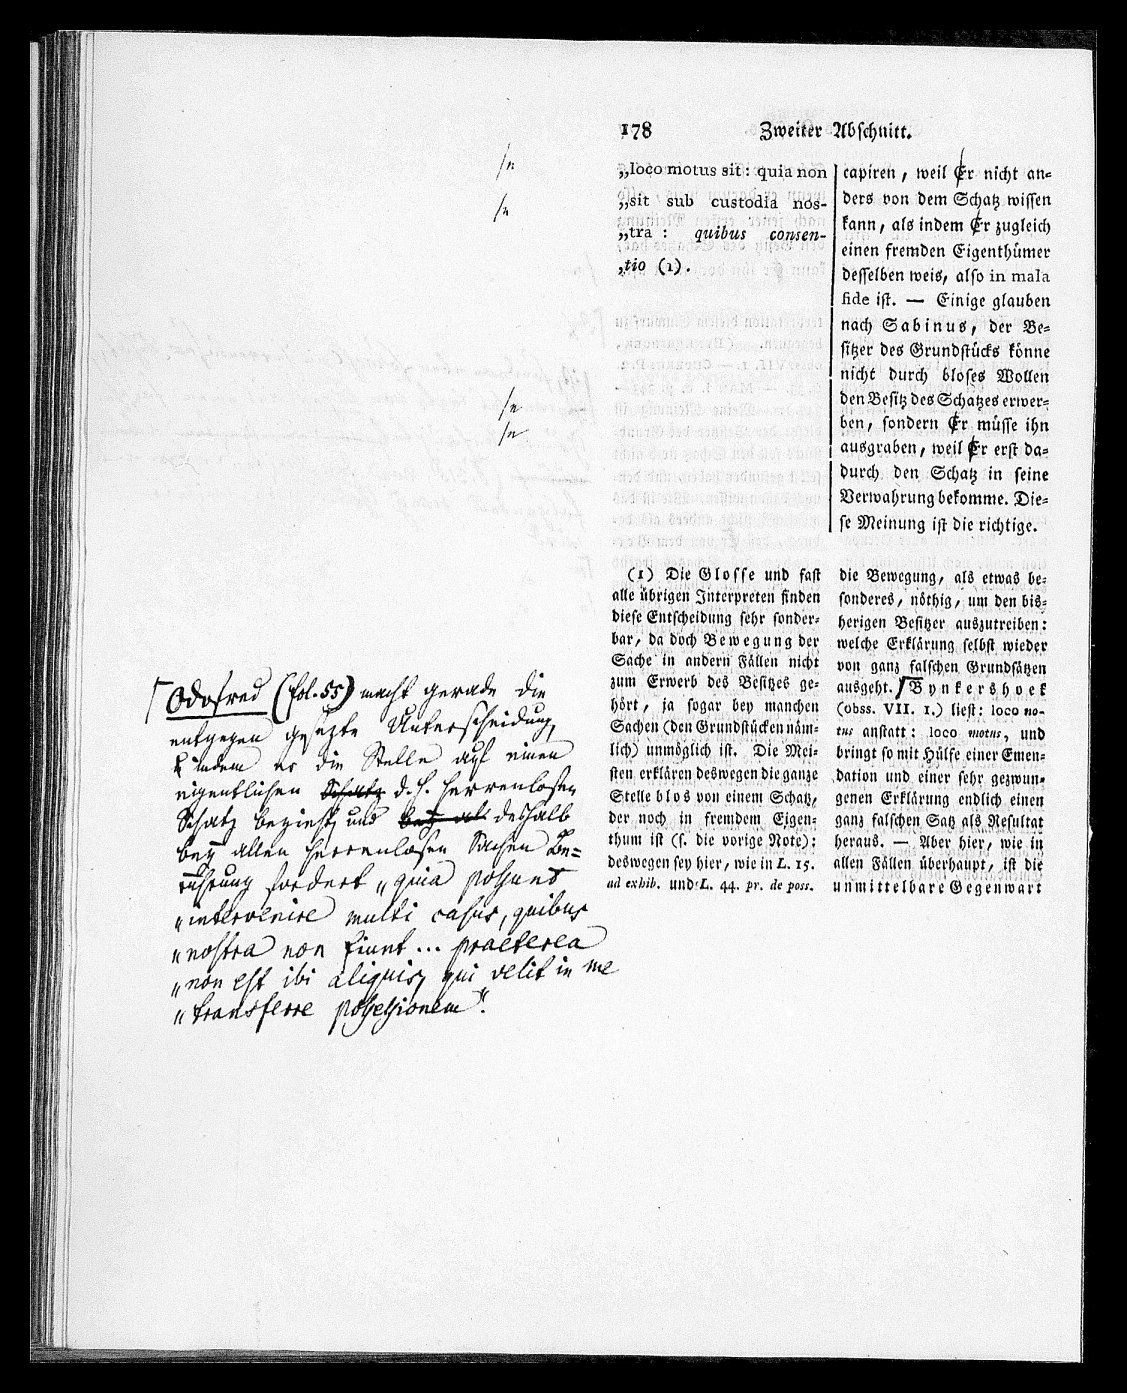 178
Zweiter Abschnitt.
„loco motus sit: quia non
„sit sub custodia nos-
„tra: quibus consen-
„tio (1).
capiren, weil Er nicht an=
ders von dem Schatz wissen
kann, als indem Er zugleich
einen fremden Eigenthümer
desselben weis, also in mala
fide ist. — Einige glauben
nach Sabinus, der Be=
sitzer des Grundstücks könne
nicht durch bloses Wollen
den Besitz des Schatzes erwer=
ben, sondern Er müsse ihn
ausgraben, weil Er erst da=
durch den Schatz in seine
Verwahrung bekomme. Die=
se Meinung ist die richtige.
(1) Die Glosse und fast
alle übrigen Interpreten finden
diese Entscheidung sehr sonder=
bar, da doch Bewegung der
Sache in andern Fällen nicht
zum Erwerb des Besitzes ge=
hört, ja sogar bey manchen
Sachen (den Grundstücken näm=
lich) unmöglich ist. Die Mei=
sten erklären deswegen die ganze
Stelle blos von einem Schatz,
der noch in fremdem Eigen=
thum ist (s. die vorige Note):
deswegen sey hier, wie in L. 15.
ad exhib. und L. 44. pr. de poss.
die Bewegung, als etwas be=
sonderes, nöthig, um den bis=
herigen Besitzer auszutreiben:
welche Erklärung selbst wieder
von ganz falschen Grundsätzen
ausgeht. ⌈Bynkershoek
(obss. VII. 1.) liest: loco no-
tus anstatt: loco motus, und
bringt so mit Hülfe einer Emen=
dation und einer sehr gezwun=
genen Erklärung endlich einen
ganz falschen Satz als Resultat
heraus. — Aber hier, wie in
allen Fällen überhaupt, ist die
unmittelbare Gegenwart
/e
/e
/e
/e
⌈Odofred (fol. 55) macht gerade die
entgegen gesezte Unterscheidung,
indem er die Stelle auf einen
eigentlichen Schatz d. h. herrenlosen
Schatz bezieht und bey deshalb
bey allen herrenlosen Sachen Be=
rührung fordert „quia possunt
„intervenire multi casus, quibus
„nostra non fiunt ... praeterea
„non est ibi aliquis, qui velit in me
„transferre possessionem".